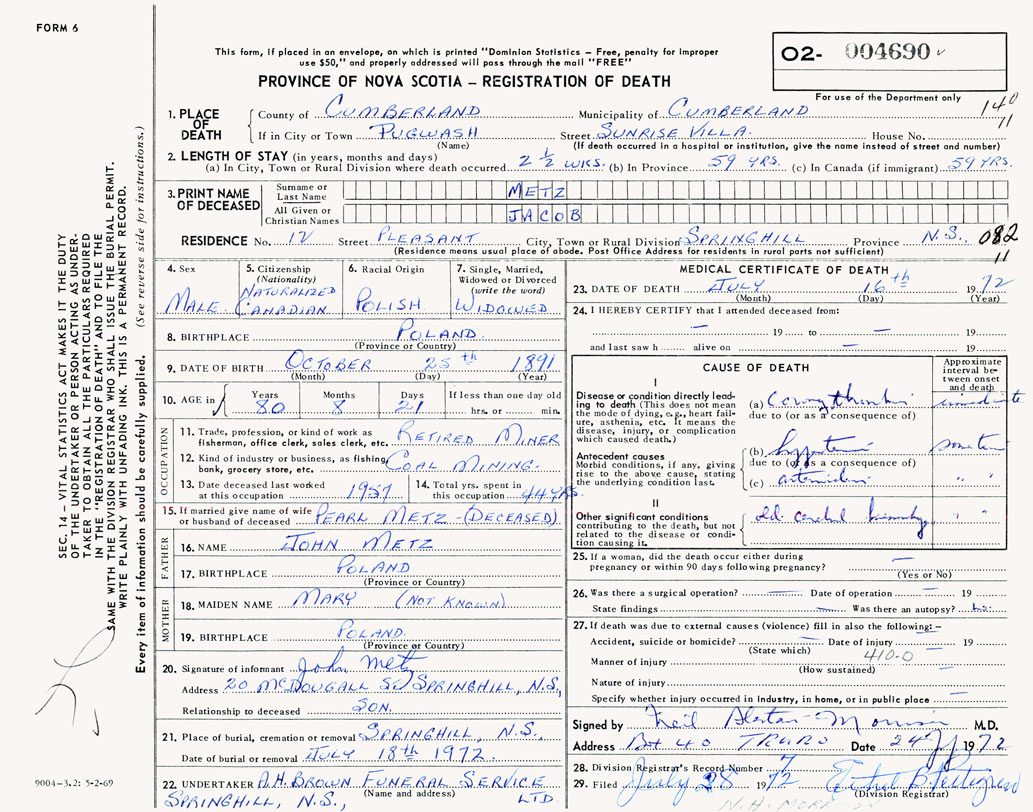 FORM 6
This form, if placed in an envelope, on which is printed "Dominion Statistics – Free, penalty for improper
use $50," and properly addressed will pass through the mail "FREE"
PROVINCE OF NOVA SCOTIA – REGISTRATION OF DEATH
02- 004690
For use of the Department only
140
11
1. PLACE OF DEATH County of CUMBERLAND Municipality of CUMBERLAND
If in City or Town PUGWASH Street SUNRISE VILLA. House No.
(Name) (If death occurred in a hospital or institution, give the name instead of street and number)
2. LENGTH OF STAY (in years, months and days)
(a) In City, Town or Rural Division where death occurred 2 1/2 WKS. (b) In Province 59 YRS. (c) In Canada (if immigrant) 59 YRS.
3. PRINT NAME OF DECEASED Surname or Last Name METZ
All Given or Christian Names JACOB
RESIDENCE No. 12 Street PLEASANT City, Town or Rural Division SPRINGHILL Province N.S. 082
(Residence means usual place of abode. Post Office Address for residents in rural parts not sufficient) 11
4. Sex MALE
5. Citizenship (Nationality) NATURALIZED CANADIAN
6. Racial Origin POLISH
7. Single, Married, Widowed or Divorced (write the word) WIDOWED
8. BIRTHPLACE POLAND
(Province or Country)
9. DATE OF BIRTH OCTOBER 25th 1891
(Month) (Day) (Year)
10. AGE in Years 80 Months 8 Days 21 If less than one day old hrs. or min.
OCCUPATION
11. Trade, profession, or kind of work as fisherman, office clerk, sales clerk, etc. RETIRED MINER
12. Kind of industry or business, as fishing, bank, grocery store, etc. COAL MINING.
13. Date deceased last worked at this occupation 1957 14. Total yrs. spent in this occupation 44 YRS.
15. If married give name of wife or husband of deceased PEARL METZ - (DECEASED)
FATHER
16. NAME JOHN METZ
17. BIRTHPLACE POLAND
(Province or Country)
MOTHER
18. MAIDEN NAME MARY (NOT KNOWN)
19. BIRTHPLACE POLAND.
(Province or Country)
20. Signature of informant John Metz
Address 20 McDOUGALL ST SPRINGHILL, N.S.,
Relationship to deceased SON.
21. Place of burial, cremation or removal SPRINGHILL, N.S.,
Date of burial or removal JULY 18th 1972.
22. UNDERTAKER A.H. BROWN FUNERAL SERVICE
(Name and address)
SPRINGHILL, N.S., LTD.
MEDICAL CERTIFICATE OF DEATH
23. DATE OF DEATH JULY 16th 1972
(Month) (Day) (Year)
24. I HEREBY CERTIFY that I attended deceased from:
— 19 ... to — 19
and last saw h ... alive on — 19
CAUSE OF DEATH
Approximate interval between onset and death
I
Disease or condition directly leading to death (This does not mean the mode of dying, e.g., heart failure, asthenia, etc. It means the disease, injury, or complication which caused death.)
(a) immediate
due to (or as a consequence of)
Antecedent causes
Morbid conditions, if any, giving rise to the above cause, stating the underlying condition last.
(b)
due to (or as a consequence of)
(c) " "
II
Other significant conditions contributing to the death, but not related to the disease or condition causing it.
old " "
25. If a woman, did the death occur either during pregnancy or within 90 days following pregnancy? —
(Yes or No)
26. Was there a surgical operation? — Date of operation — 19
State findings — Was there an autopsy?
27. If death was due to external causes (violence) fill in also the following: –
Accident, suicide or homicide? — Date of injury 19
(State which) 410-0
Manner of injury
(How sustained)
Nature of injury —
Specify whether injury occurred in industry, in home, or in public place —
Signed by Neil M.D.
Address Bx 40 TRURO Date 24 1972
28. Division Registrar's Record Number 7
29. Filed July 28 1972 Ethel B
(Division Registrar)
SEC. 14 – VITAL STATISTICS ACT MAKES IT THE DUTY
OF THE UNDERTAKER OR PERSON ACTING AS UNDER-
TAKER TO OBTAIN ALL THE PARTICULARS REQUIRED
IN THE "REGISTRATION OF DEATH" AND TO FILE THE
SAME WITH THE DIVISION REGISTRAR WHO SHALL ISSUE THE BURIAL PERMIT.
WRITE PLAINLY WITH UNFADING INK. THIS IS A PERMANENT RECORD.
Every item of information should be carefully supplied. (See reverse side for instructions.)
9004-3.2: 5-2-69